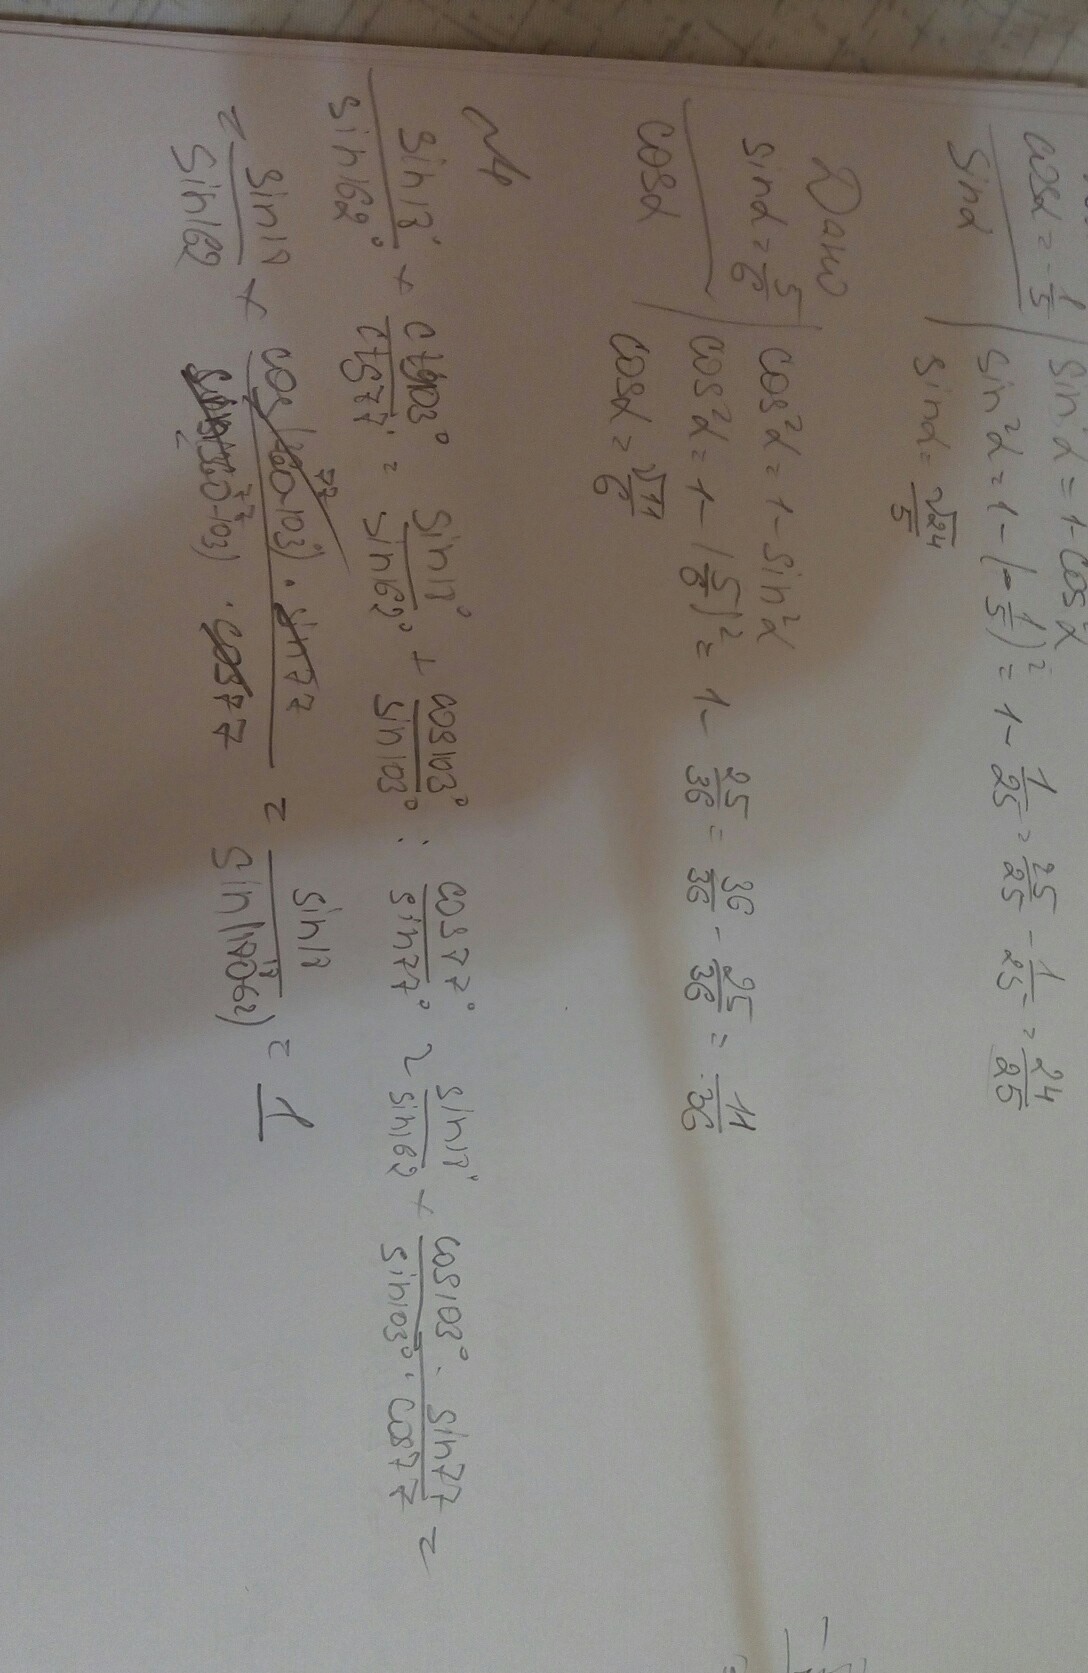 cosα = -1/5 | sin²α = 1 - cos²α
sinα | sin²α = 1 - (-1/5)² = 1 - 1/25 = 25/25 - 1/25 = 24/25
sinα = √24/5
Дано
sinα = 5/6 | cos²α = 1 - sin²α
cosα | cos²α = 1 - (5/6)² = 1 - 25/36 = 36/36 - 25/36 = 11/36
cosα = √11/6
№4
sin18°/sin162° + ctg103°/ctg77° = sin18°/sin162° + cos103°/sin103° : cos77°/sin77° = sin18°/sin162 + cos103° · sin77/sin103° · cos77 =
= sin18/sin162 + cos(180-103) · sin77/sin(180-103) · cos77 = sin18/sin(180-162) = 1